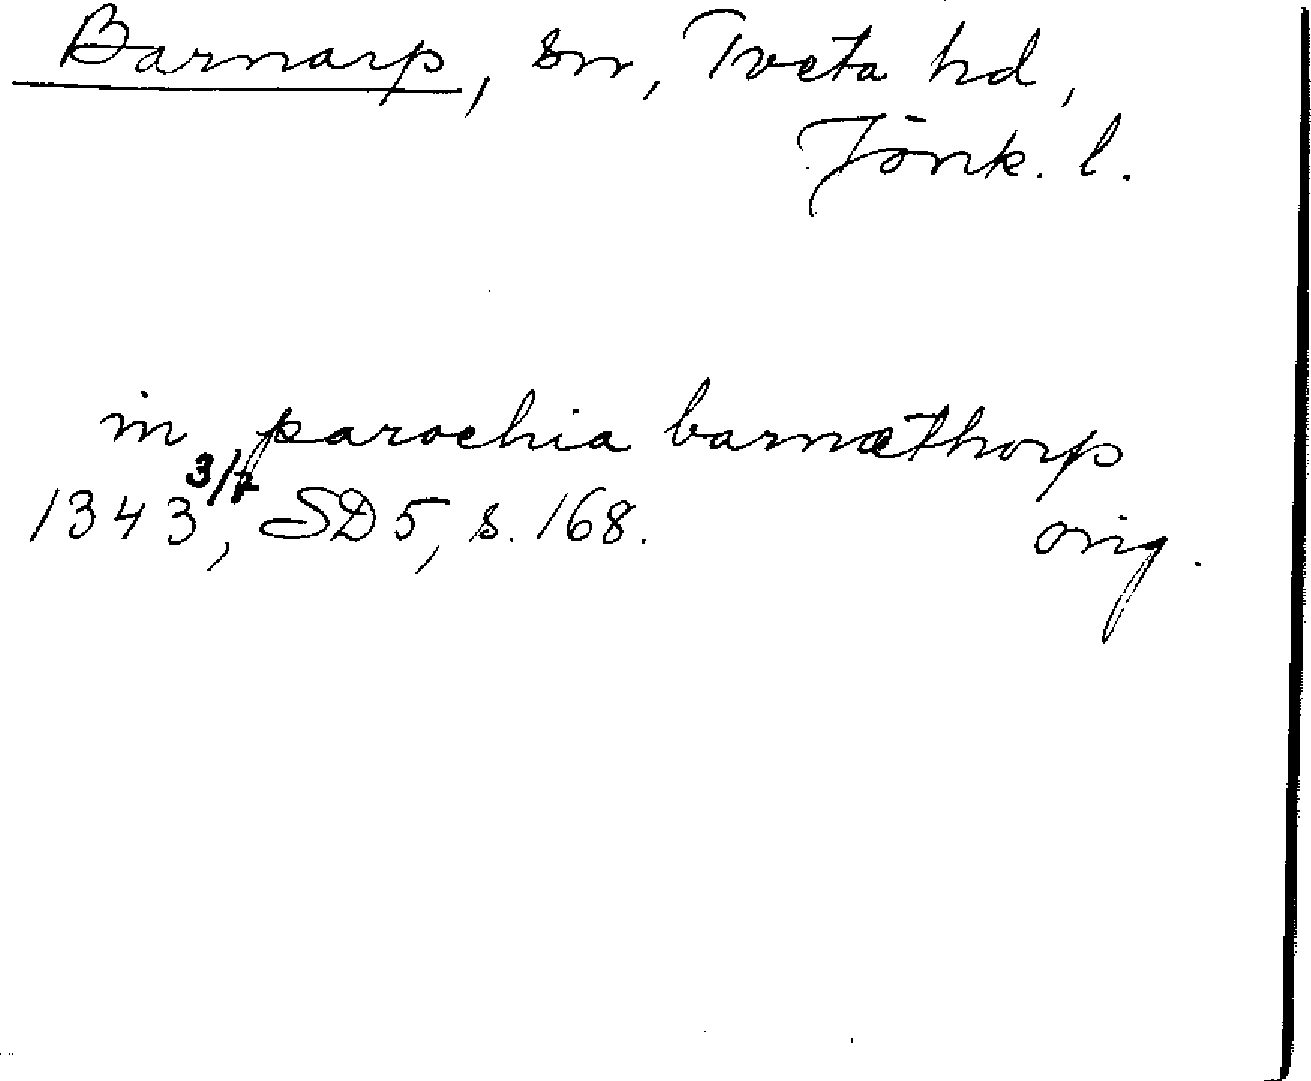 Barnarp, sn, Tveta hd,
Jönk. l.
in parochia barnæthorp
1343 3/7, SD5, s. 168. orig.